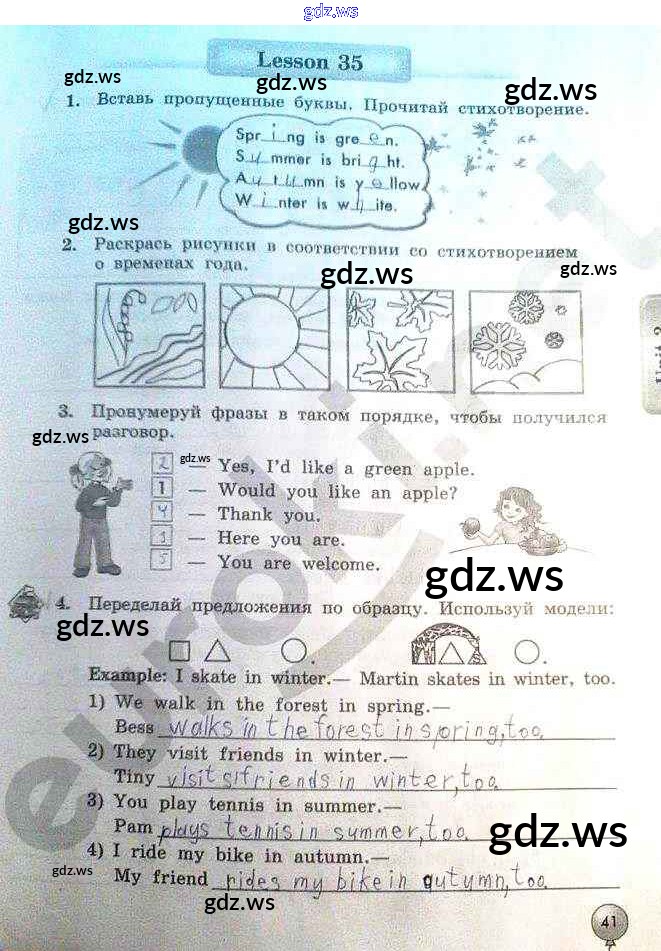 gdz.ws
Lesson 35
gdz.ws
gdz.ws
gdz.ws
1. Вставь пропущенные буквы. Прочитай стихотворение.
Spring is green.
Summer is bright.
Autumn is yellow
Winter is white.
gdz.ws
2. Раскрась рисунки в соответствии со стихотворением
о временах года.
gdz.ws
gdz.ws
3. Пронумеруй фразы в таком порядке, чтобы получился
разговор.
gdz.ws
gdz.ws
2 — Yes, I'd like a green apple.
1 — Would you like an apple?
4 — Thank you.
3 — Here you are.
5 — You are welcome.
gdz.ws
4. Переделай предложения по образцу. Используй модели:
gdz.ws
Example: I skate in winter.— Martin skates in winter, too.
1) We walk in the forest in spring.—
Bess walks in the forest in spring, too.
2) They visit friends in winter.—
Tiny visits friends in winter, too.
3) You play tennis in summer.—
Pam plays tennis in summer, too.
gdz.ws
4) I ride my bike in autumn.—
gdz.ws
My friend rides my bike in autumn, too.
gdz.ws
41
euroki.net